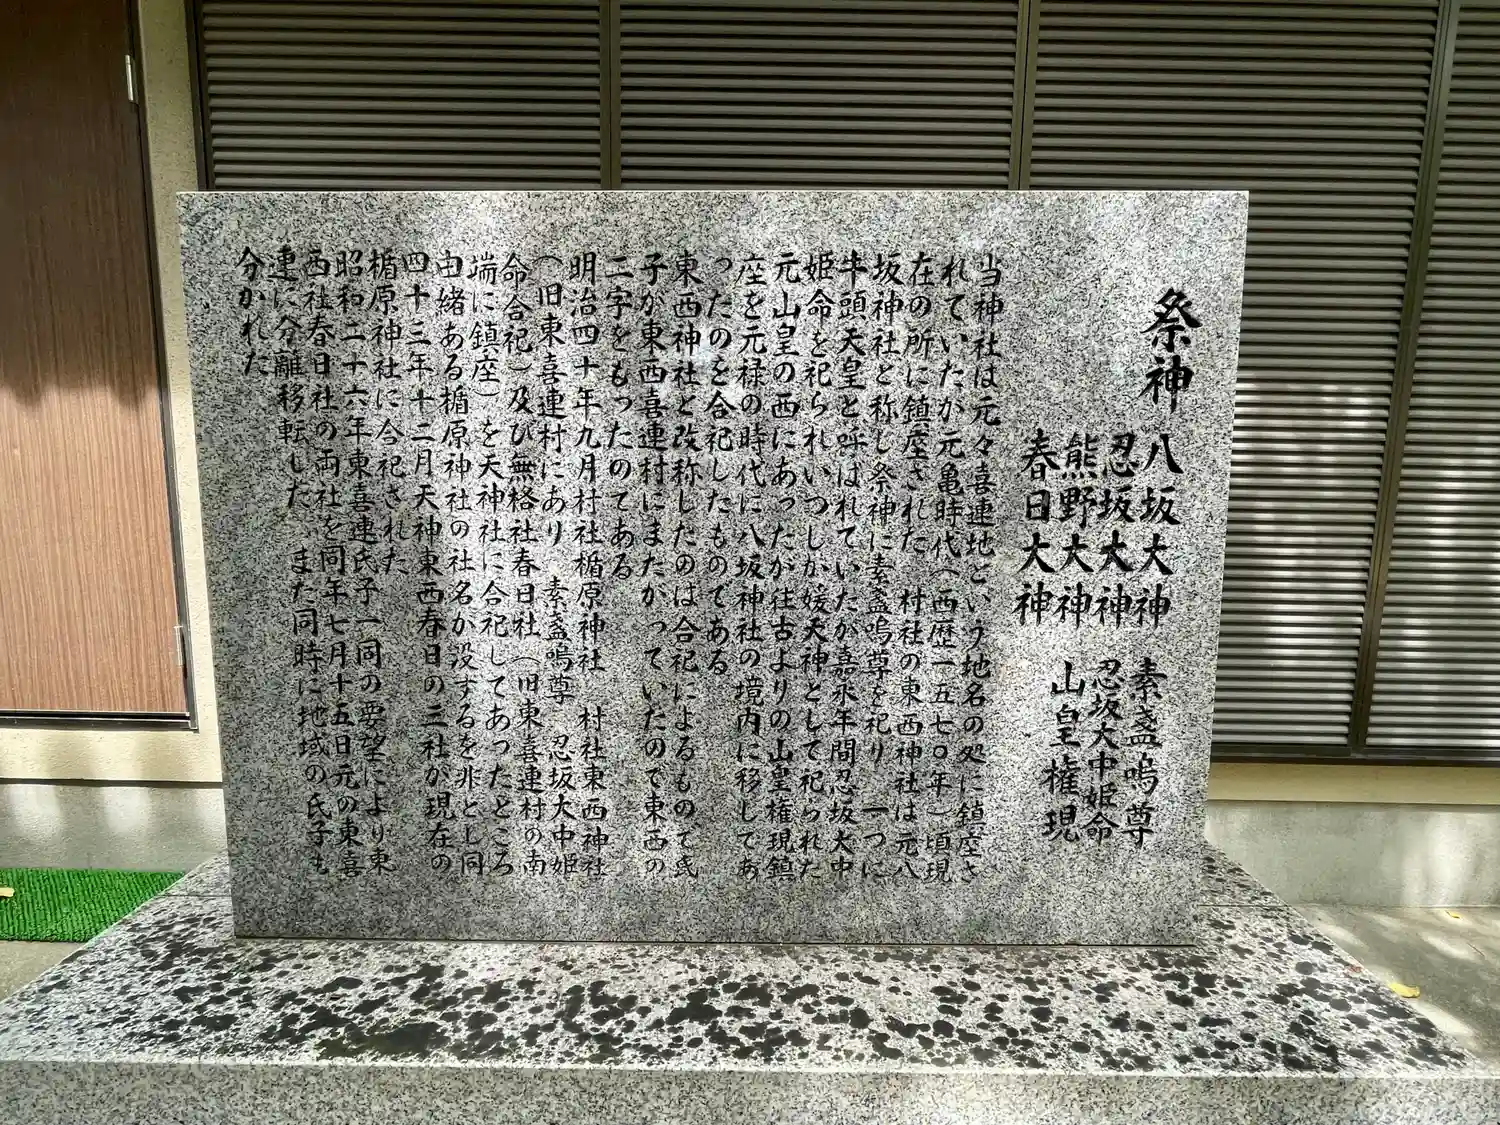 祭神
八坂大神 素盞嗚尊
忍坂大神 忍坂大中姫命
熊野大神 山皇権現
春日大神
当神社は元々喜連地という地名の処に鎮座さ
れていたが元亀時代(西歴一五七〇年)頃現
在の所に鎮座された 村社の東西神社は元八
坂神社と称し祭神に素盞嗚尊を祀り 一つに
牛頭天皇と呼ばれていたが嘉永年間忍坂大中
姫命を祀られいつしか媛天神として祀られた
元山皇の西にあったが往古よりの山皇権現鎮
座を元禄の時代に八坂神社の境内に移してあ
ったのを合祀したものである
東西神社と改称したのは合祀によるもので氏
子が東西喜連村にまたがっていたので東西の
二字をもったのである
明治四十年九月村社楯原神社 村社東西神社
(旧東喜連村にあり 素盞嗚尊 忍坂大中姫
命合祀)及び無格社春日社(旧東喜連村の南
端に鎮座)を天神社に合祀してあったところ
由緒ある楯原神社の社名が没するを非とし同
四十三年十二月天神東西春日の三社が現在の
楯原神社に合祀された
昭和二十六年東喜連氏子一同の要望により東
西社春日社の両社を同年七月十五日元の東喜
連に分離移転した また同時に地域の氏子も
分かれた